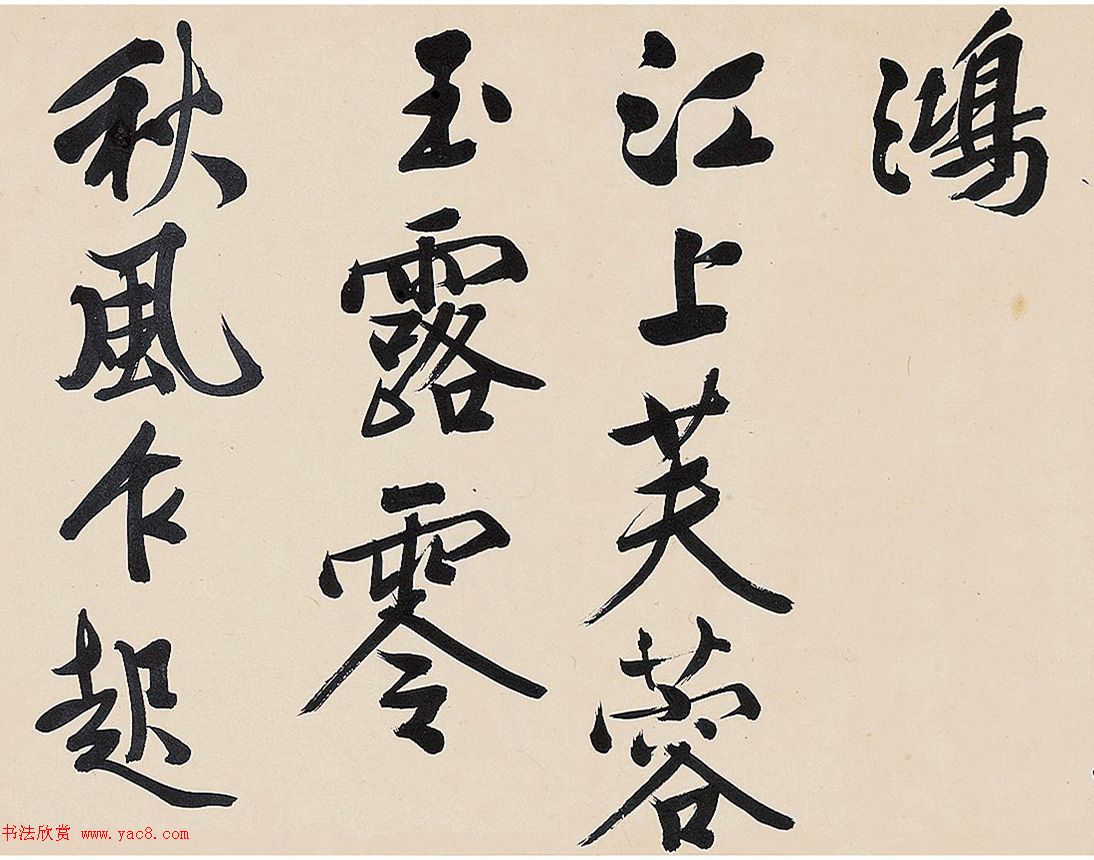 鴻
江上芙蓉
玉露零
秋風乍起
书法欣赏 www.yac8.com